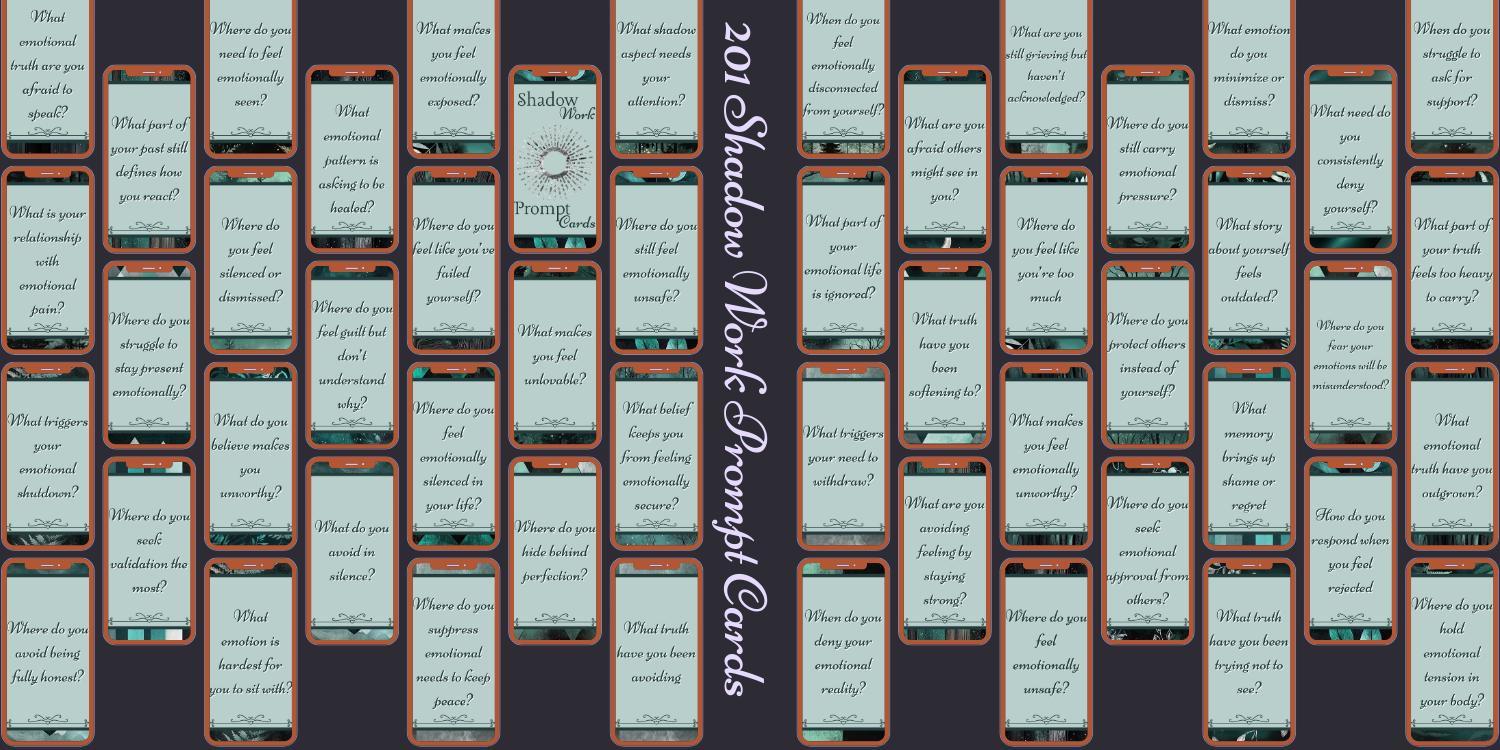 What
emotional
truth are you
afraid to
speak?
What is your
relationship
with
emotional
pain?
What triggers
your
emotional
shutdown?
Where do you
avoid being
fully honest?
What part of
your past still
defines how
you react?
Where do you
struggle to
stay present
emotionally?
Where do you
seek
validation the
most?
Where do you
need to feel
emotionally
seen?
Where do
you feel
silenced or
dismissed?
What do you
believe makes
you
unworthy?
What
emotion is
hardest for
you to sit with?
What
emotional
pattern is
asking to be
healed?
Where do you
feel guilt but
don't
understand
why?
What do you
avoid in
silence?
What makes
you feel
emotionally
exposed?
Where do you
feel like you've
failed
yourself?
Where do you
feel
emotionally
silenced in
your life?
Where do you
suppress
emotional
needs to keep
peace?
Shadow
Work
Prompt
Cards
What makes
you feel
unlovable?
Where do you
hide behind
perfection?
What shadow
aspect needs
your
attention?
Where do you
still feel
emotionally
unsafe?
What belief
keeps you
from feeling
emotionally
secure?
What truth
have you been
avoiding
201 Shadow Work Prompt Cards
When do you
feel
emotionally
disconnected
from yourself?
What part of
your
emotional life
is ignored?
What triggers
your need to
withdraw?
When do you
deny your
emotional
reality?
What are you
afraid others
might see in
you?
What truth
have you
been
softening to?
What are you
avoiding
feeling by
staying
strong?
What are you
still grieving but
haven't
acknowledged?
Where do
you feel like
you're too
much
What makes
you feel
emotionally
unworthy?
Where do you
feel
emotionally
unsafe?
Where do you
still carry
emotional
pressure?
Where do you
protect others
instead of
yourself?
Where do you
seek
emotional
approval from
others?
What emotion
do you
minimize or
dismiss?
What story
about yourself
feels
outdated?
What
memory
brings up
shame or
regret
What truth
have you been
trying not to
see?
What need do
you
consistently
deny
yourself?
Where do you
fear your
emotions will be
misunderstood?
How do you
respond when
you feel
rejected
When do you
struggle to
ask for
support?
What part of
your truth
feels too heavy
to carry?
What
emotional
truth have you
outgrown?
Where do you
hold
emotional
tension in
your body?